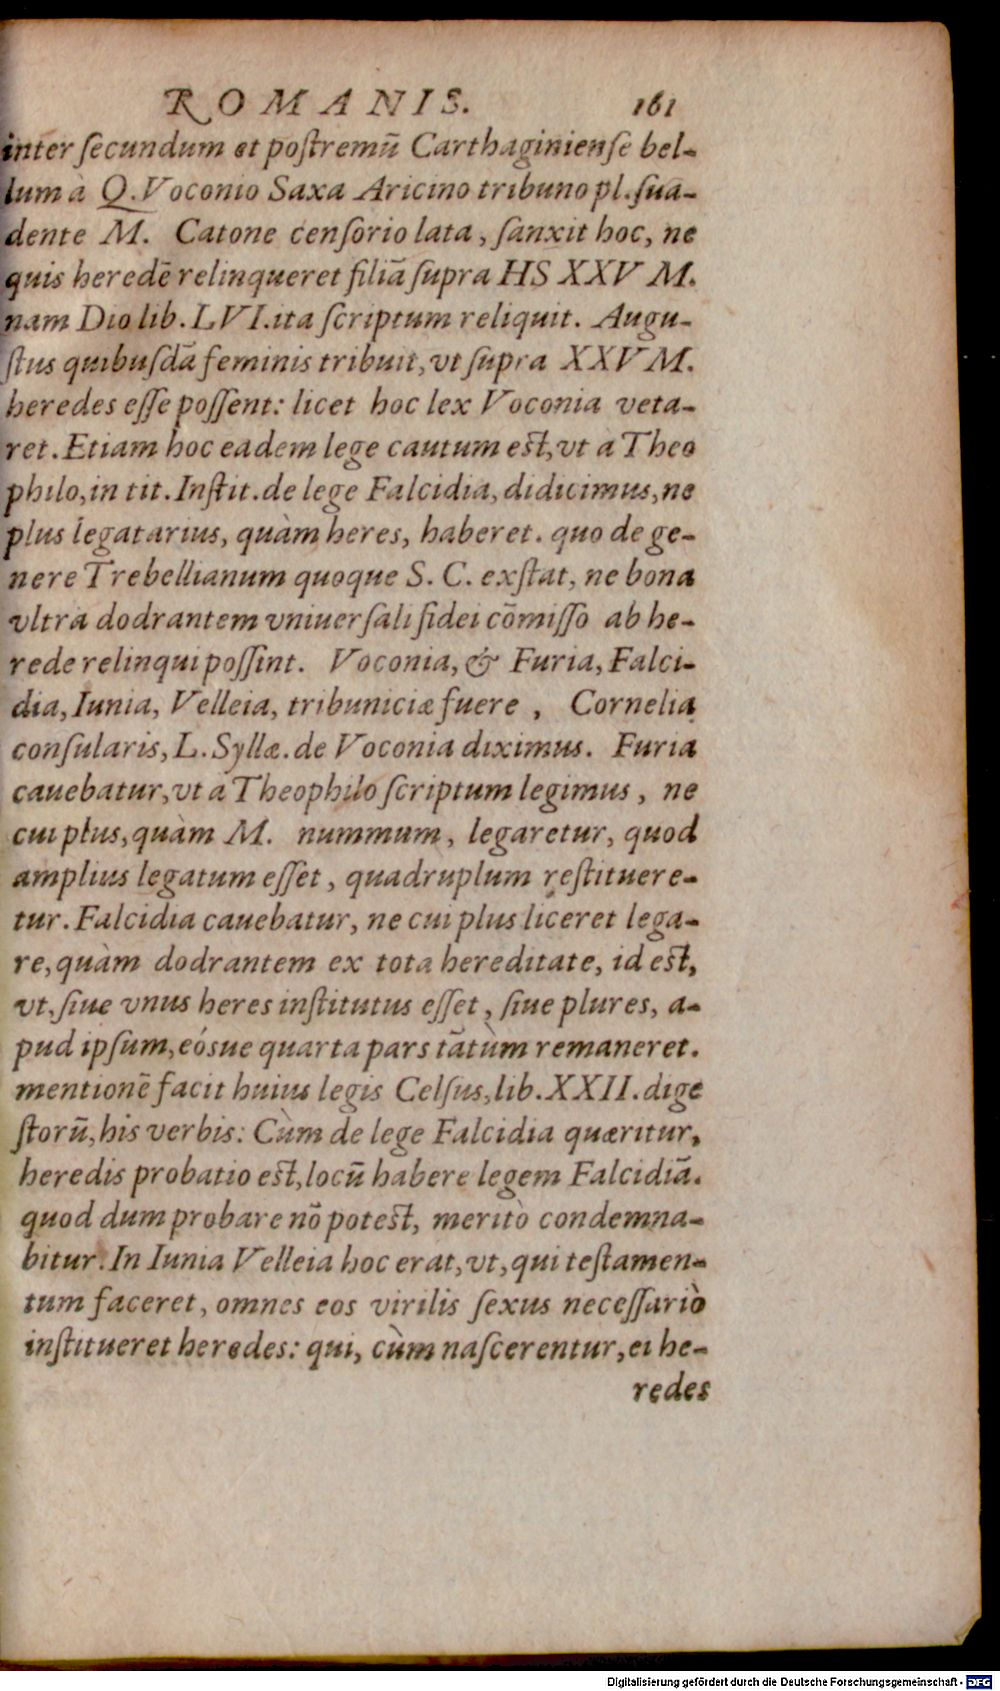 ROMANIS. 161
inter ſecundum et poſtremũ Carthaginienſe bel-
lum à Q. Voconio Saxa Aricino tribuno pl. ſua-
dente M. Catone cenſorio lata, ſanxit hoc, ne
quis heredẽ relinqueret filiã ſupra HS XXV M.
nam Dio lib. LVI. ita ſcriptum reliquit. Augu-
ſtus quibuſdã feminis tribuit, vt ſupra XXV M.
heredes eſſe poſſent: licet hoc lex Voconia veta-
ret. Etiam hoc eadem lege cautum eſt, vt à Theo
philo, in tit. Inſtit. de lege Falcidia, didicimus, ne
plus legatarius, quàm heres, haberet. quo de ge-
nere Trebellianum quoque S. C. exſtat, ne bona
vltra dodrantem vniuerſali fidei cõmiſſo ab he-
rede relinqui poſſint. Voconia, & Furia, Falci-
dia, Iunia, Velleia, tribuniciæ fuere, Cornelia
conſularis, L. Syllæ. de Voconia diximus. Furia
cauebatur, vt à Theophilo ſcriptum legimus, ne
cui plus, quàm M. nummum, legaretur, quod
amplius legatum eſſet, quadruplum reſtituere-
tur. Falcidia cauebatur, ne cui plus liceret lega-
re, quàm dodrantem ex tota hereditate, id eſt,
vt, ſiue vnus heres inſtitutus eſſet, ſiue plures, a-
pud ipſum, eóſue quarta pars tãtùm remaneret.
mentionẽ facit huius legis Celſus, lib. XXII. dige
ſtorũ, his verbis: Cùm de lege Falcidia quæritur,
heredis probatio eſt, locũ habere legem Falcidiã.
quod dum probare nõ poteſt, meritò condemna-
bitur. In Iunia Velleia hoc erat, vt, qui teſtamen-
tum faceret, omnes eos virilis ſexus neceſſariò
inſtitueret heredes: qui, cùm naſcerentur, ei he-
redes
Digitalisierung gefördert durch die Deutsche Forschungsgemeinschaft - DFG